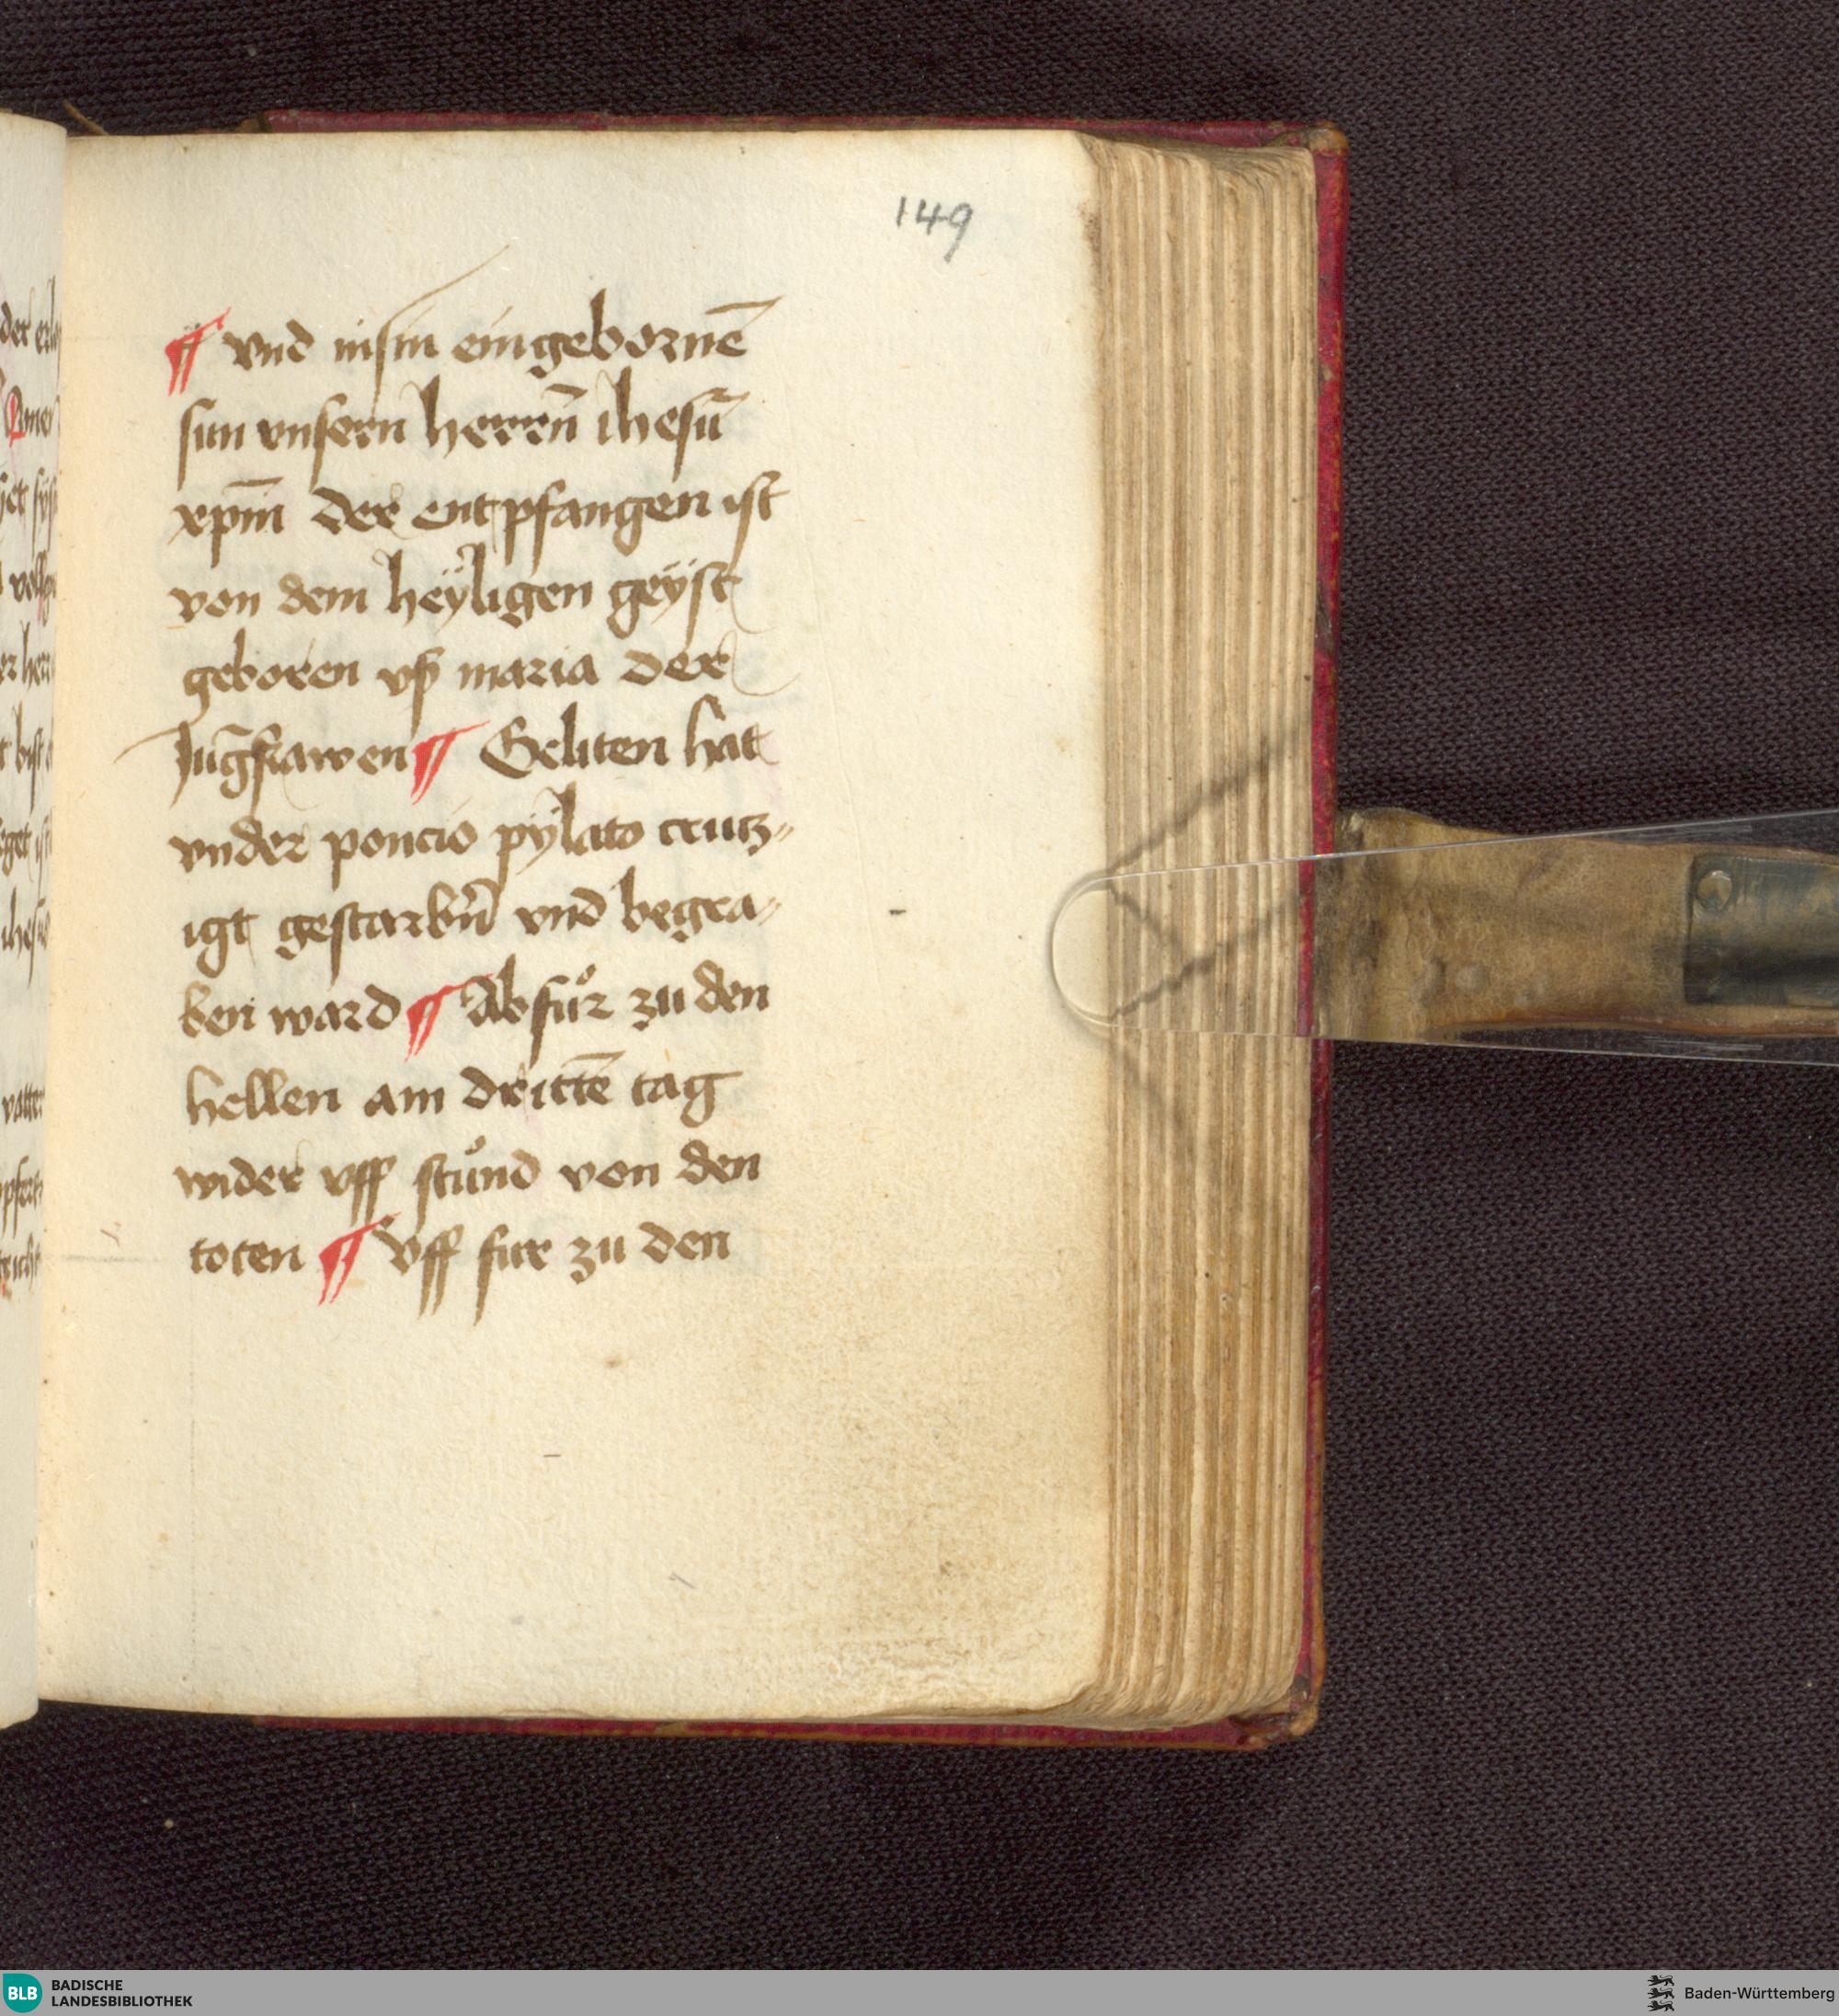 149
¶ vnd in sin eingebornē
sun vnsern herrn̄ ihesū
xp̄m der entpfangen ist
von dem heÿligen geÿst
geboren vß maria der
Jūgfrawen ¶ Geliten hat
vnder poncio pÿlato crutz„
igt gestarbn̄ vnd begra„
ben ward ¶ Ab fuͦr zu den
hellen am drittē tag
wider vff stuͦnd von den
toten ¶ Vff fur zu den
BLB BADISCHE
LANDESBIBLIOTHEK
Baden-Württemberg